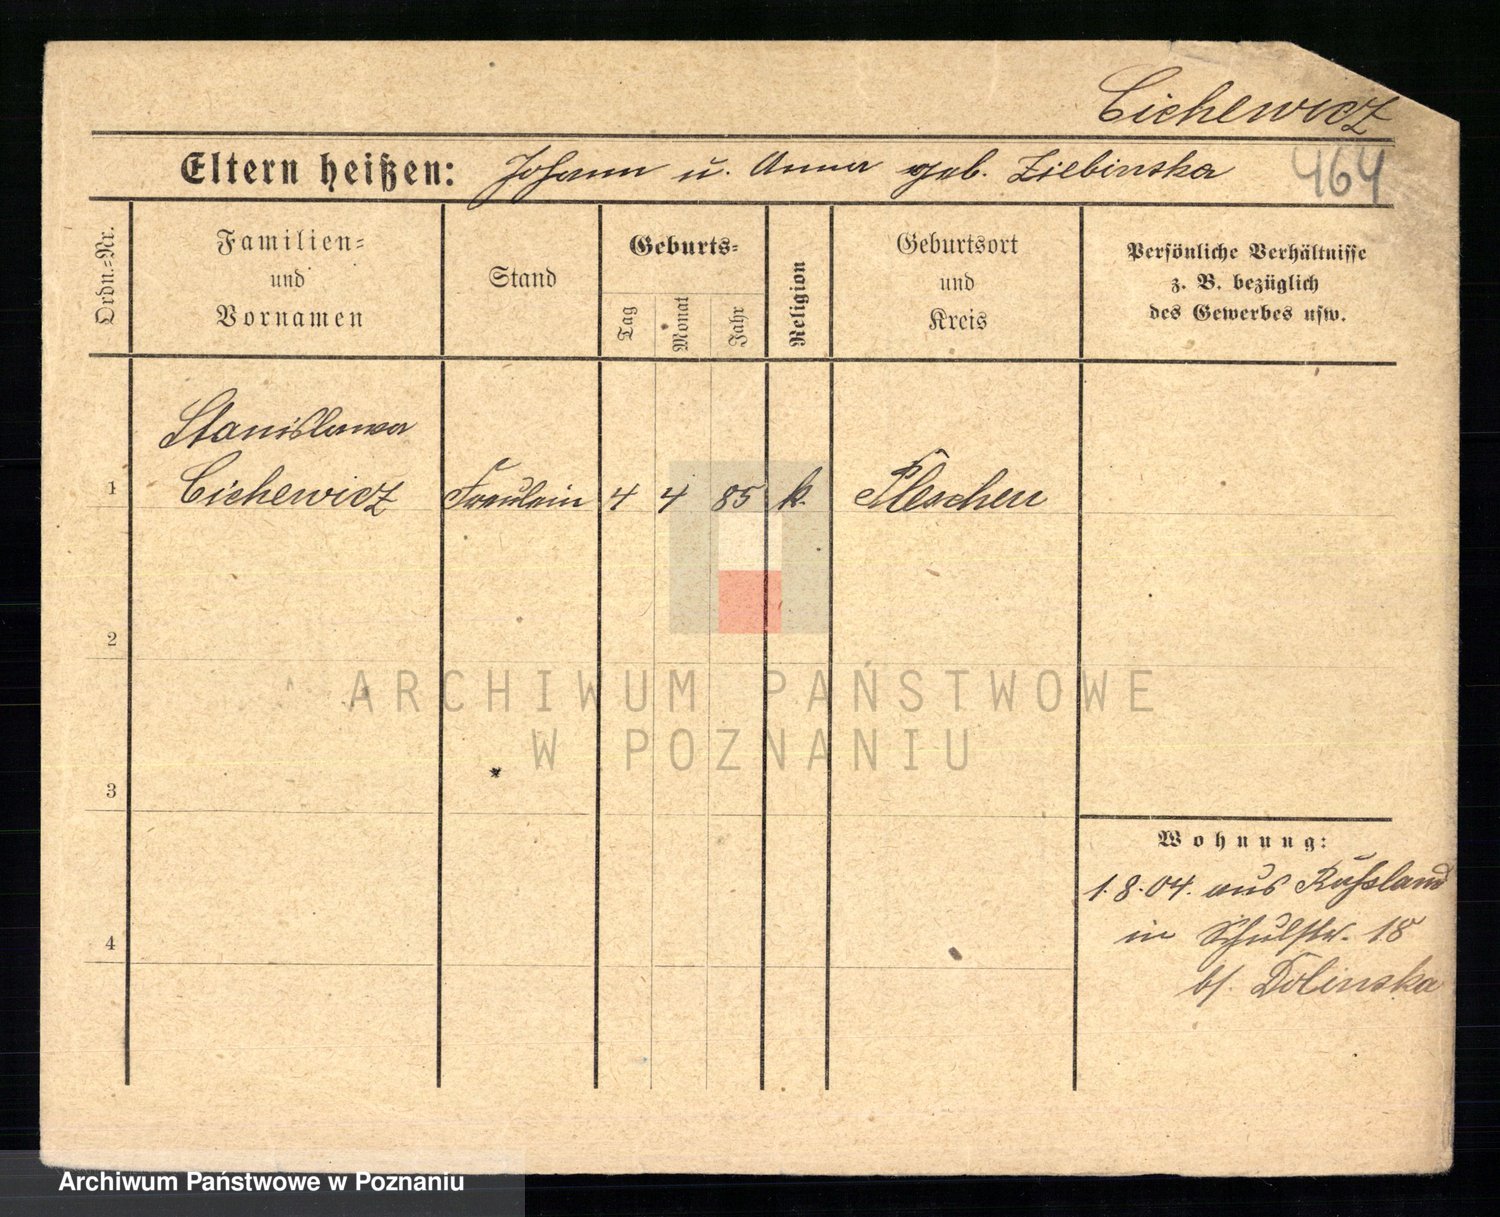 Cichewicz
Eltern heißen: Johann u. Anna geb. Ziebinska 464
Ordn.-Nr.
Familien-
und
Vornamen
Stand
Geburts-
Tag
Monat
Jahr
Religion
Geburtsort
und
Kreis
Persönliche Verhältnisse
z. B. bezüglich
des Gewerbes usw.
Stanislawa
1 Cichewicz Fräulein 4 4 85 k. Pleschen
2
ARCHIWUM PAŃSTWOWE
W POZNANIU
3
Wohnung:
1.8.04. aus Russland
4 in Schulstr. 18
b/. Dolinska
Archiwum Państwowe w Poznaniu